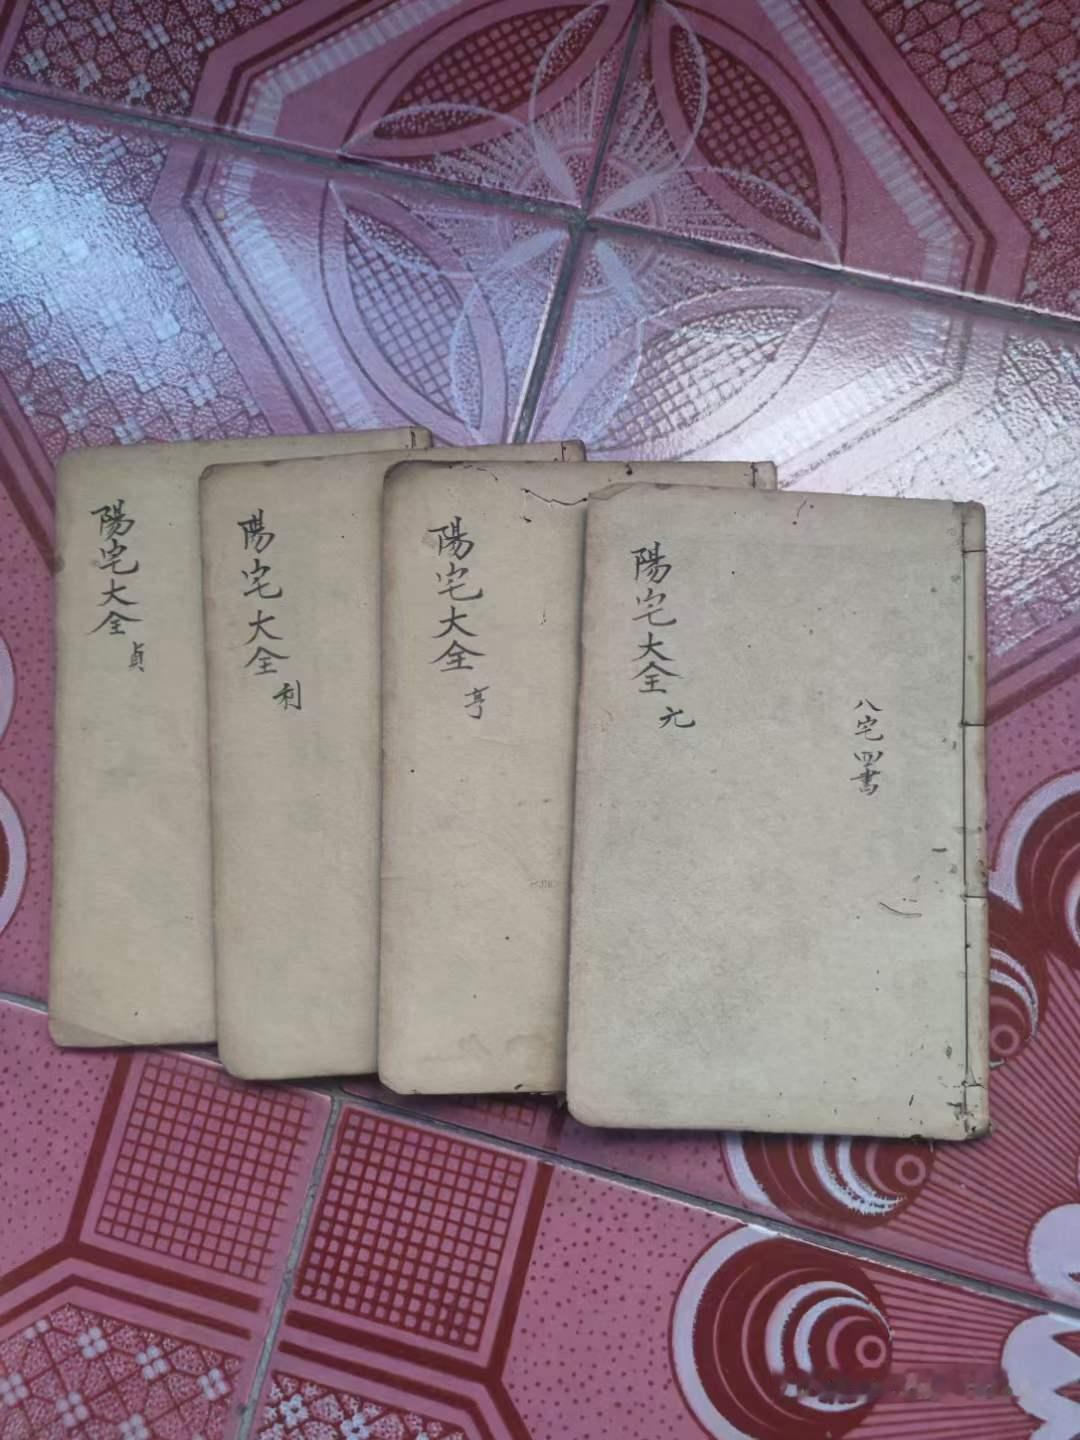 陽宅大全 貞
陽宅大全 利
陽宅大全 亨
陽宅大全 元
八宅四書